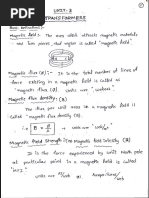 UNIT-3
TRANSFORMERS
Basic definitions:-
Magnetic field:- The area which attracts magnetic materials
and iron pieces, that region is called "magnetic field".
Magnetic flux (Φ):- It is the total number of lines of
force existing in a magnetic field is called as
magnetic flux. units are "webers".
Magnetic flux density: (B)
The flux per unit area in a magnetic field is
called magnetic flux density (B)
i.e B = Φ/A → units - wb/m²
Magnetic field strength (or) Magnetic field intensity (H)
It is the force experienced by unit north pole
at particular point in a magnetic field is called
"H".
units are N/wb (or) Amper-turns/mts